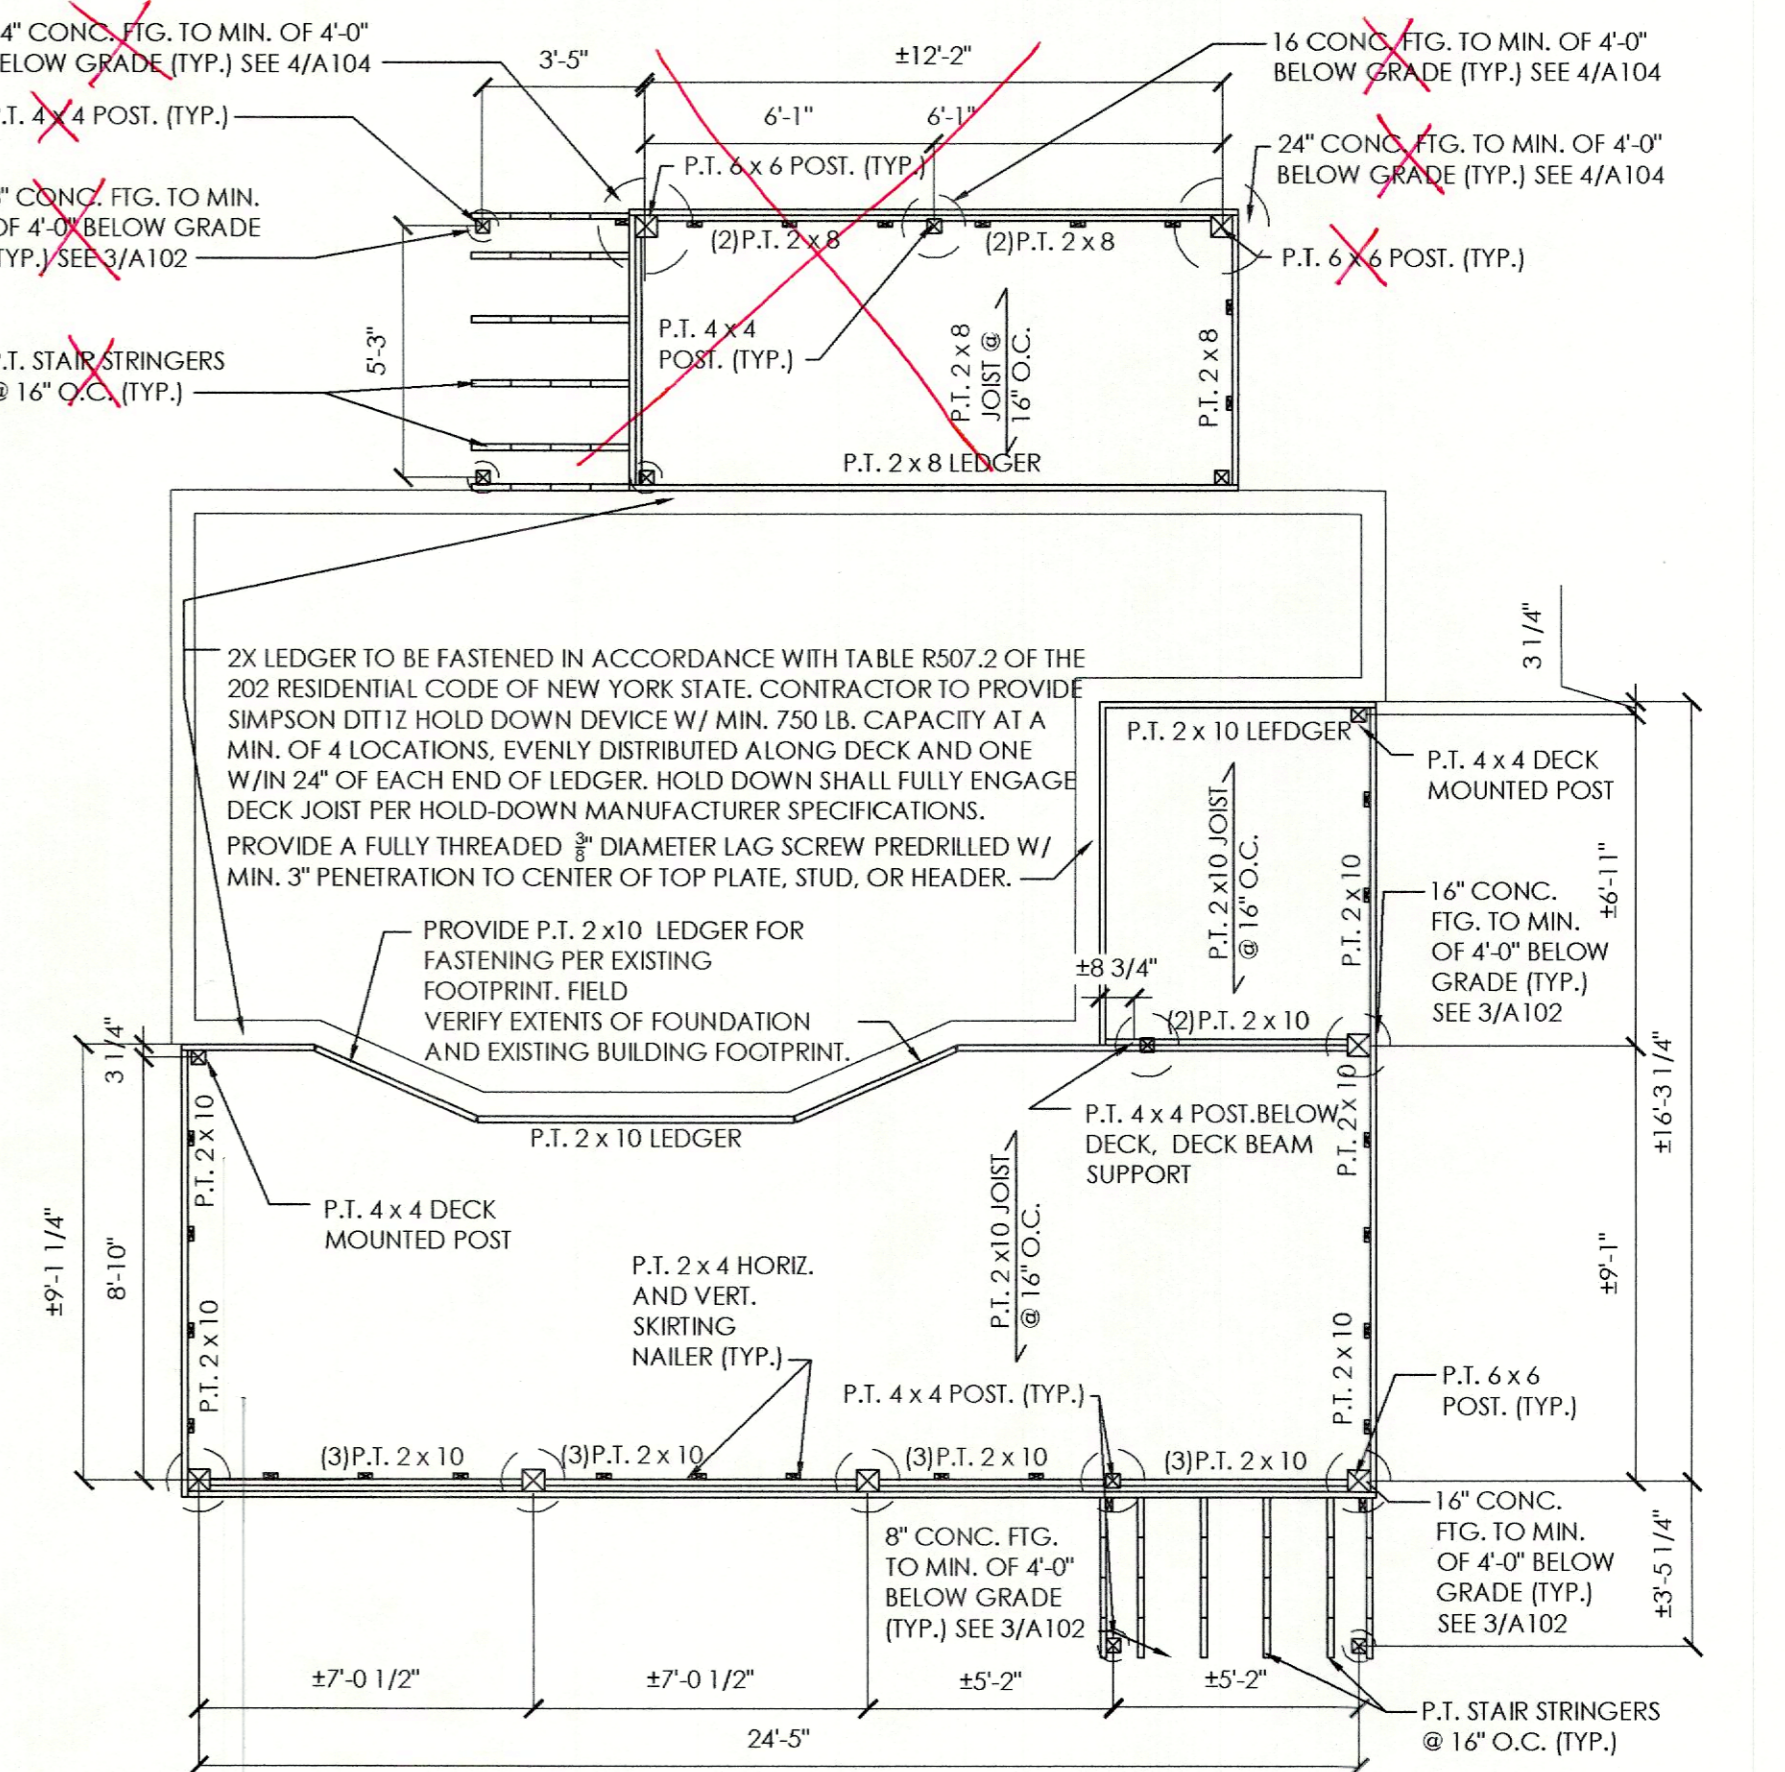 4" CONC. FTG. TO MIN. OF 4'-0"
ELOW GRADE (TYP.) SEE 4/A104
.T. 4 x 4 POST. (TYP.)
" CONC. FTG. TO MIN.
OF 4'-0" BELOW GRADE
TYP.) SEE 3/A102
.T. STAIR STRINGERS
@ 16" O.C. (TYP.)
3'-5"
±12'-2"
6'-1"
6'-1"
16 CONC. FTG. TO MIN. OF 4'-0"
BELOW GRADE (TYP.) SEE 4/A104
24" CONC. FTG. TO MIN. OF 4'-0"
BELOW GRADE (TYP.) SEE 4/A104
P.T. 6 x 6 POST. (TYP.)
P.T. 6 x 6 POST. (TYP.)
(2)P.T. 2 x 8
(2)P.T. 2 x 8
5'-3"
P.T. 4 x 4
POST. (TYP.)
P.T. 2 x 8
JOIST @
16" O.C.
P.T. 2 x 8
P.T. 2 x 8 LEDGER
2X LEDGER TO BE FASTENED IN ACCORDANCE WITH TABLE R507.2 OF THE
202 RESIDENTIAL CODE OF NEW YORK STATE. CONTRACTOR TO PROVIDE
SIMPSON DTT1Z HOLD DOWN DEVICE W/ MIN. 750 LB. CAPACITY AT A
MIN. OF 4 LOCATIONS, EVENLY DISTRIBUTED ALONG DECK AND ONE
W/IN 24" OF EACH END OF LEDGER. HOLD DOWN SHALL FULLY ENGAGE
DECK JOIST PER HOLD-DOWN MANUFACTURER SPECIFICATIONS.
PROVIDE A FULLY THREADED 3/8" DIAMETER LAG SCREW PREDRILLED W/
MIN. 3" PENETRATION TO CENTER OF TOP PLATE, STUD, OR HEADER.
3 1/4"
P.T. 2 x 10 LEFDGER
P.T. 4 x 4 DECK
MOUNTED POST
P.T. 2 x10 JOIST
@ 16" O.C.
P.T. 2 x 10
±6'-11"
16" CONC.
FTG. TO MIN.
OF 4'-0" BELOW
GRADE (TYP.)
SEE 3/A102
PROVIDE P.T. 2 x10 LEDGER FOR
FASTENING PER EXISTING
FOOTPRINT. FIELD
VERIFY EXTENTS OF FOUNDATION
AND EXISTING BUILDING FOOTPRINT.
±8 3/4"
(2)P.T. 2 x 10
±16'-3 1/4"
3 1/4"
P.T. 2 x 10
P.T. 2 x 10 LEDGER
P.T. 4 x 4 POST.BELOW
DECK, DECK BEAM
SUPPORT
P.T. 2 x 10
P.T. 4 x 4 DECK
MOUNTED POST
±9'-1 1/4"
8'-10"
P.T. 2 x10 JOIST
@ 16" O.C.
±9'-1"
P.T. 2 x 4 HORIZ.
AND VERT.
SKIRTING
NAILER (TYP.)
P.T. 2 x 10
P.T. 2 x 10
P.T. 4 x 4 POST. (TYP.)
P.T. 6 x 6
POST. (TYP.)
(3)P.T. 2 x 10
(3)P.T. 2 x 10
(3)P.T. 2 x 10
(3)P.T. 2 x 10
8" CONC. FTG.
TO MIN. OF 4'-0"
BELOW GRADE
(TYP.) SEE 3/A102
16" CONC.
FTG. TO MIN.
OF 4'-0" BELOW
GRADE (TYP.)
SEE 3/A102
±3'-5 1/4"
±7'-0 1/2"
±7'-0 1/2"
±5'-2"
±5'-2"
P.T. STAIR STRINGERS
@ 16" O.C. (TYP.)
24'-5"